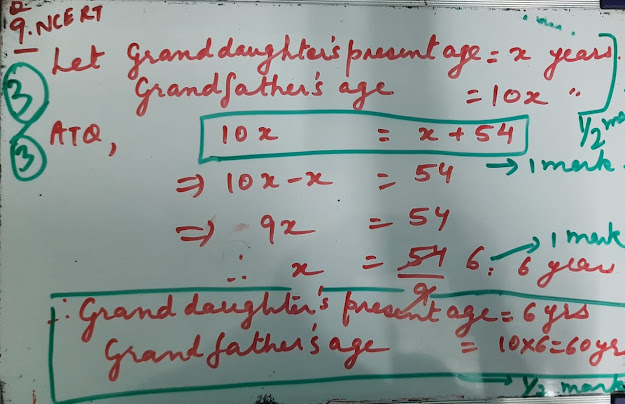 Q
9. NCERT
Let Granddaughter's present age = x years.
Grandfather's age = 10x "
3
3
1/2
ATQ,
10x = x + 54
→ 1 mark
⇒ 10x - x = 54
⇒ 9x = 54
→ 1 mark
∴ x = 54/9 6 = 6 years
∴ Granddaughter's present age = 6 yrs
Grandfather's age = 10×6=60yr
→ 1/2 mark